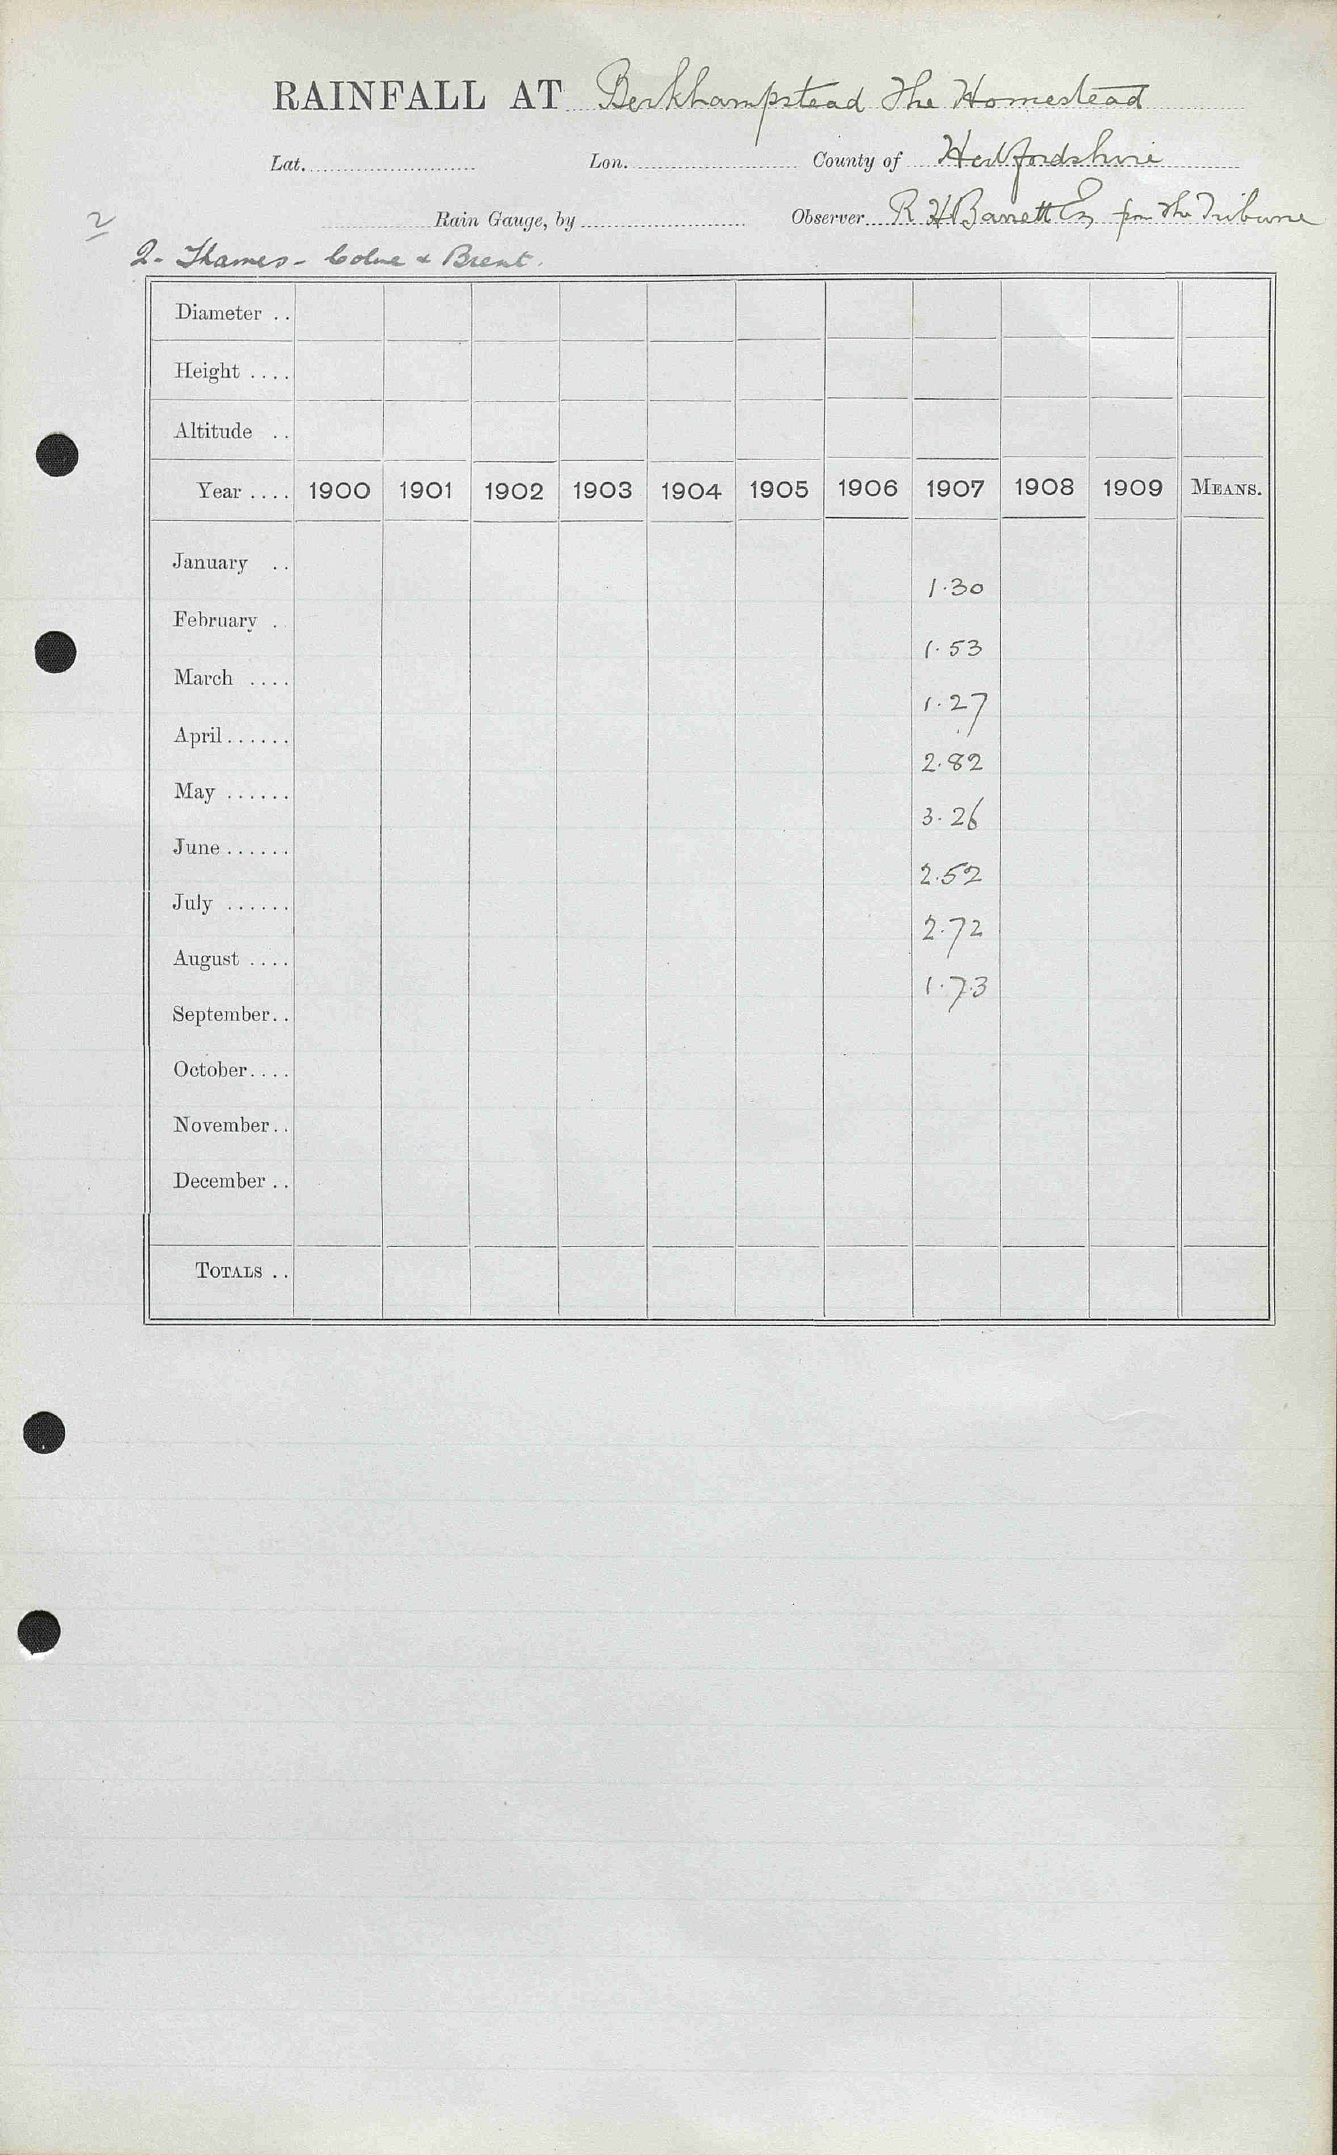 RAINFALL AT Berkhampstead The Homestead
Lat. Lon. County of Hertfordshire
2 Rain Gauge, by Observer R H Barrett Esq from The Tribune
2 - Thames - Colne & Brent.
Diameter ..
Height ....
Altitude ..
Year .... 1900 1901 1902 1903 1904 1905 1906 1907 1908 1909 MEANS.
January ..
1.30
February .
1.53
March ....
1.27
April ......
2.82
May ......
3.26
June ......
2.52
July ......
2.72
August ....
1.73
September..
October....
November..
December ..
TOTALS ..